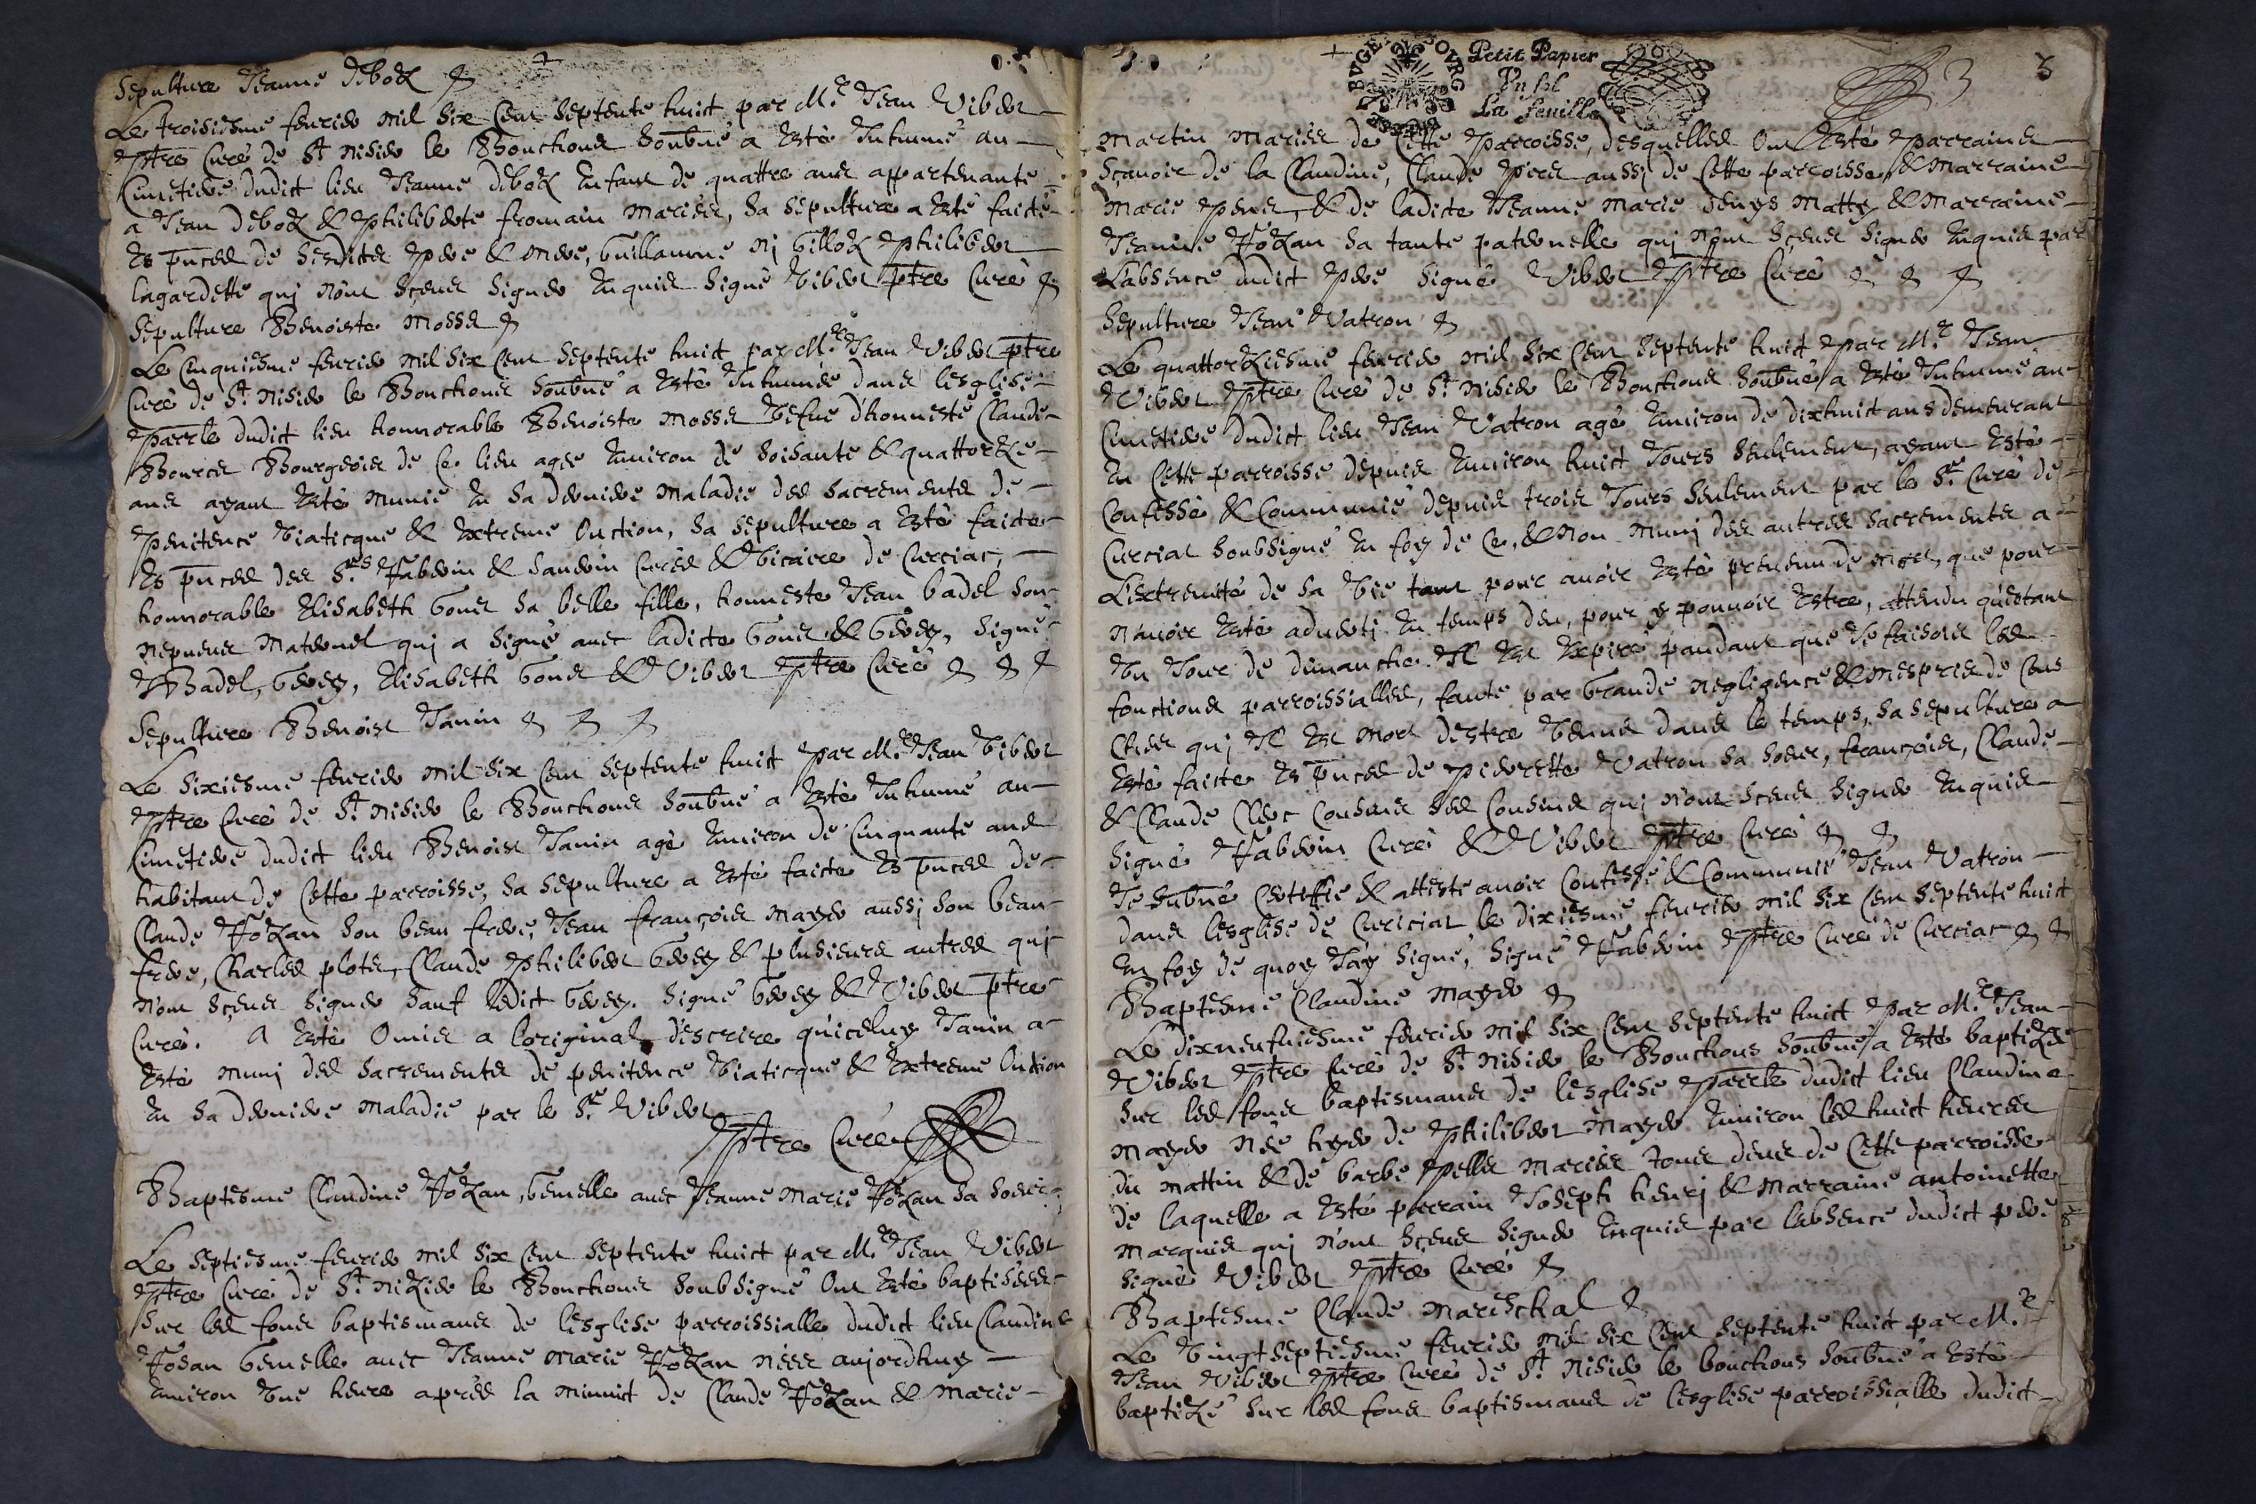 Sepulture Jeanne deboz
Le troisiesme feurier mil six cent septente huict par Mre Jean Vibert
ptre curé de St Nisier le Bouchoux soubné a esté Inhumé au
Cimetiere dudict lieu Jeanne deboz enfant de quattre ans appartenante
a Jean deboz & philiberte fromain mariés, sa sepulture a esté faicte
es pnces de sesdites pere & mere, Guillaume philibert
lagardette qui n'ont sçeus signer enquis signé Vibert ptre Curé
Sepulture Benoiste mosse
Le cinquiesme feurier mil six cent septente huict par Mre Jean Vibert ptre
curé de St Nisier le Bouchoux soubné a esté Inhumée dans l'esglise
parrle dudict lieu honnorable Benoiste mosse vefue d'honneste Claude
Bource Bourgeois de ce lieu agee enuiron de soisante & quattorze
ans ayant esté munie en sa derniere maladie des sacrements de
penitence viaticque & extreme onction, sa sepulture a esté faicte
es pnces des Srs Faberin & sauvin curés & vicaire de Curciat,
honnorable Elisabeth Gout sa belle fille, honneste Jean badel son
nepueu maternel qui a signé auec ladicte Gout & Gerey, signé
Badel, Gerey, Elisabeth Gout & Vibert ptre Curé
Sepulture Benoist Janin
Le sixiesme feurier mil six cent septente huict par Mre Jean Vibert
ptre curé de St Nisier le Bouchoux soubné a esté Inhumé au
Cimetiere dudict lieu Benoist Janin agé enuiron de cinquante ans
habitant de cette parroisse, sa sepulture a esté faicte es pnces de
Claude Fozan son beau frere, Jean françois mayer aussi son beau
frere, Charles plotet, Claude philibert Gerey & plusieurs autres qui
n'ont sçeus signer sauf ledict Gerey. signé Gerey & Vibert ptre
Curé. A esté omis a l'original d'escrire qu'iceluy Janin a
esté muni des sacrements de penitence viaticque & extreme onction
en sa derniere maladie par le Sr Vibert
ptre Curé
Baptesme Claudine Fozan, gemelle auec Jeanne marie Fozan sa soeur
Le septiesme feurier mil six cent septente huict par Mre Jean Vibert
ptre curé de St Nizier le Bouchoux soubsigné ont esté baptisées
sur les fons baptismaux de l'esglise parroissialle dudict lieu Claudine
Fosan gemelle auec Jeanne marie Fozan nées aujordhuy
enuiron une heure aprés la minuit de Claude Fozan & marie
Petit Papier
Vn sol
La feuille
3
martin mariés de cette parroisse, desquelles ont esté parrains
sçauoir de la Claudine, Claude aussi de cette parroisse & marraine
marie & de ladicte Jeanne marie denys mattey & marraine
Jeanne Fozan sa tante paternelle qui n'ont sçeus signer enquis par
l'absence dudict pere signé Vibert ptre Curé
Sepulture Jean Vatron
Le quattorziesme feurier mil six cent septente huict par Mre Jean
Vibert ptre curé de St Nisier le Bouchoux soubné a esté Inhumé au
Cimetiere dudict lieu Jean Vatron agé enuiron de dixhuict ans demeurant
en cette parroisse depuis enuiron huict Jours seulement, ayant esté
Confessé & Communié depuis trois Jours seulement par le Sr Curé de
Curciat soubsigné en foy de ce, & non muni des autres sacrements a
l'extremité de sa vie tant pour auoir esté preuenu de mort, que pour
n'auoir esté aduerti en temps deu, pour y pouuoir estre, attendu qu'etant
vn Jour de dimanche Il est expiré pandant que Je faisois les
fonctions parroissialles, faute par grande negligence & mespris de ceux
chez qui Il est mort d'estre venus dans le temps, sa sepulture a
esté faicte es pnces de pierrette Vatron sa soeur, françois, Claude
& Claude Clerc cousins ses cousins qui n'ont sceus signer enquis
signé Faberin Curé & Vibert ptre Curé
Je subné certiffie & atteste auoir confessé & Communié Jean Vatron
dans l'esglise de Curciat le dixiesme feurier mil six cent septente huict
en foy de quoy J'ay signé, signé Faberin ptre Curé de Curciat
Baptesme Claudine mayer
Le dixneufuiesme feurier mil six cent septente huict par Mre Jean
Vibert ptre curé de St Nisier le Bouchoux soubné a esté baptizée
sur les fons baptismaux de l'esglise parrle dudict lieu Claudine
mayer née hyer de philibert mayer enuiron les huict heures
du mattin & de barbe pelle mariés tous deux de cette parroisse
de laquelle a esté parrain Joseph henri & marraine antoinette
marquis qui n'ont sçeus signer enquis par l'absence dudict pere
signé Vibert ptre Curé
Baptesme Claude marischal
Le vingtseptiesme feurier mil six cent septente huict par Mre
Jean Vibert ptre curé de St Nisier le bouchoux soubné a esté
baptizé sur les fons baptismaux de l'esglise parroissialle dudict